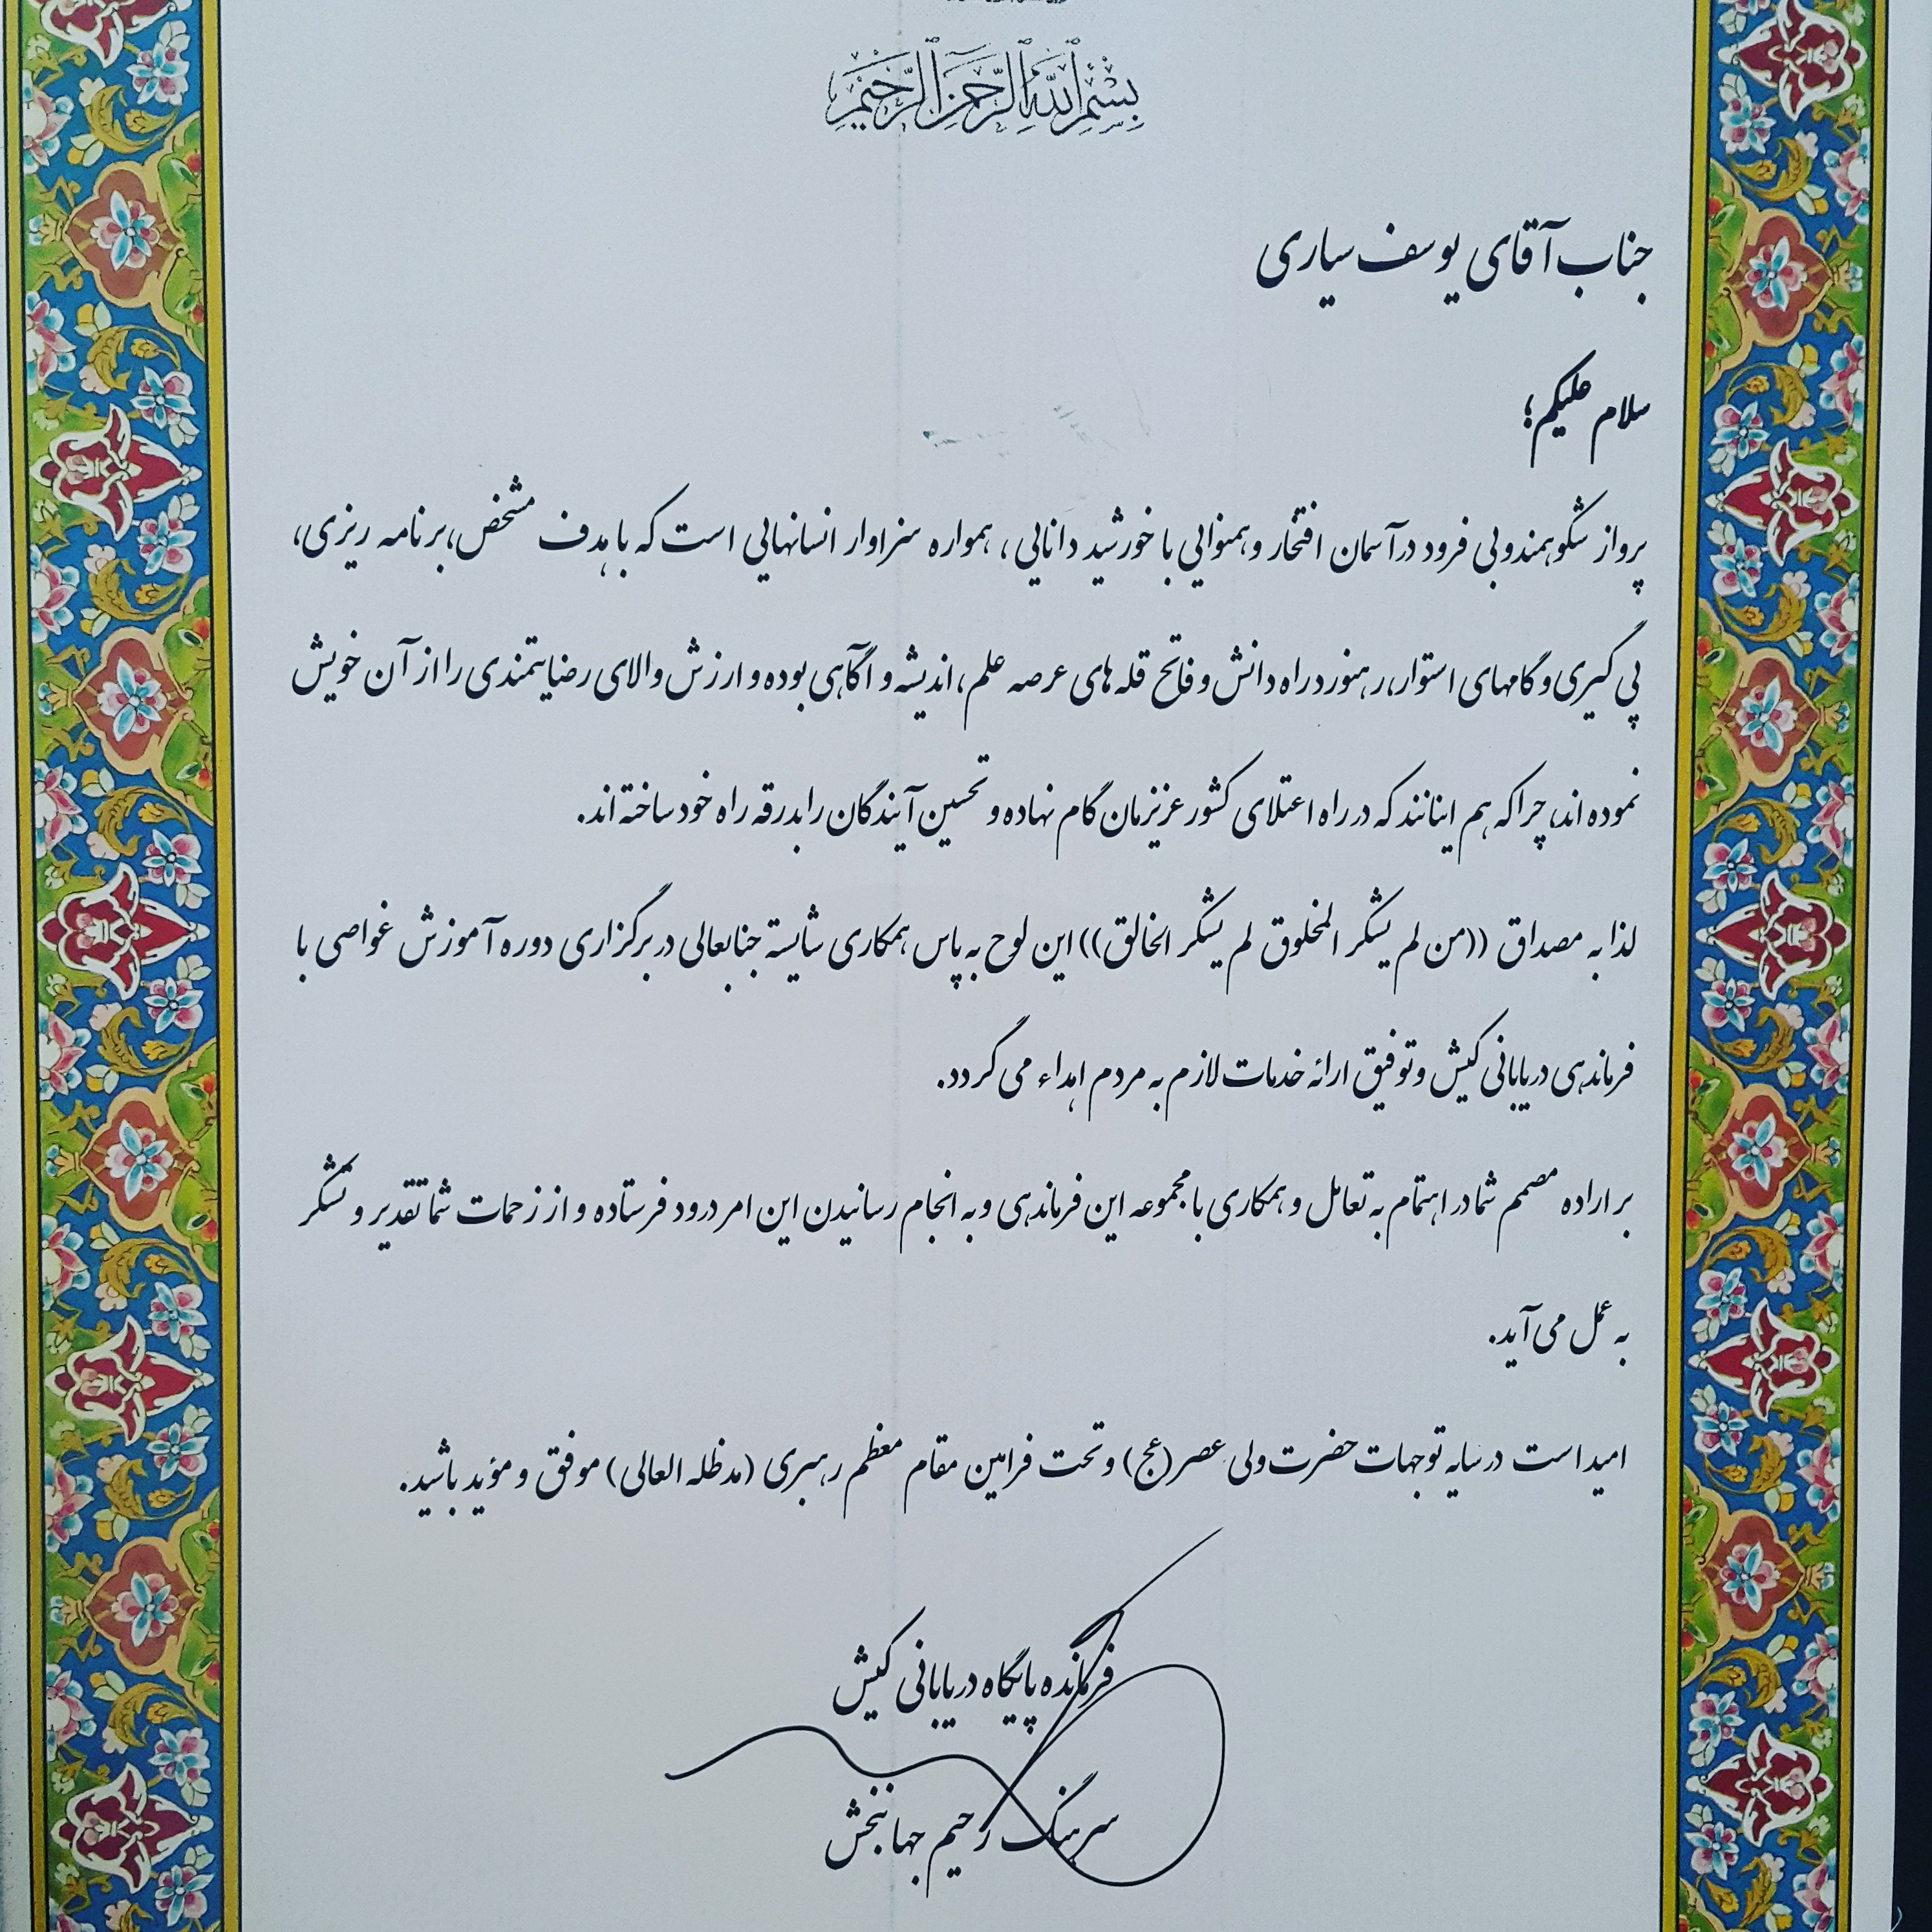 بِسْمِ ٱللَّهِ ٱلرَّحْمَٰنِ ٱلرَّحِيمِ
جناب آقای یوسف سیاری
سلام علیکم؛
پرواز شکوهمند و بی فرود در آسمان افتخار و همنوایی با خورشید دانایی، همواره سزاوار انسانهایی است که با هدف مشخص، برنامه ریزی،
پی گیری و گامهای استوار، رهنورد راه دانش و فاتح قله های عرصه علم، اندیشه و آگاهی بوده و ارزش والای رضایتمندی را از آن خویش
نموده اند، چرا که هم اینانند که در راه اعتلای کشور عزیزمان گام نهاده و تحسین آیندگان را بدرقه راه خود ساخته اند.
لذا به مصداق ((من لم یشکر المخلوق لم یشکر الخالق)) این لوح به پاس همکاری شایسته جنابعالی در برگزاری دوره آموزش غواصی با
فرماندهی دریابانی کیش و توفیق ارائه خدمات لازم به مردم اهداء می گردد.
بر اراده مصمم شما در اهتمام به تعامل و همکاری با مجموعه این فرماندهی و به انجام رسانیدن این امر درود فرستاده و از زحمات شما تقدیر و تشکر
به عمل می آید.
امید است در سایه توجهات حضرت ولی عصر (عج) و تحت فرامین مقام معظم رهبری (مدظله العالی) موفق و مؤید باشید.
فرمانده پایگاه دریابانی کیش
سرهنگ رحیم جهانبخش